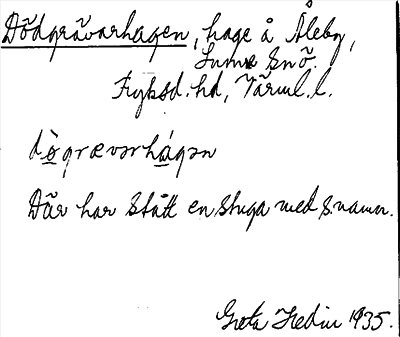 Dödgrävarhagen, hage å Åleby,
Sunne Snö.
Fryksd. hd, Värml. l.
dö̀grævarhágən
Där har stått en stuga med s. namn.
Greta Hedin 1935.